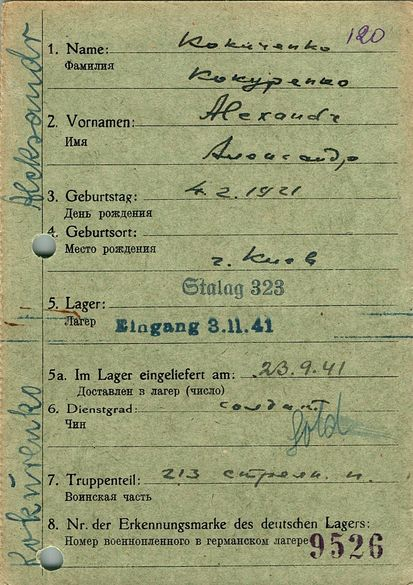 120
1. Name:
Фамилия
Кокуренко
2. Vornamen: Alexandr
Имя
Александр
3. Geburtstag: 4. 2. 1921
День рождения
4. Geburtsort:
Место рождения
г. Киев
Stalag 323
5. Lager:
Лагерь
Eingang 3.11.41
5a. Im Lager eingeliefert am: 23.9.41
Доставлен в лагерь (число)
6. Dienstgrad: солдат
Чин
Sold
7. Truppenteil: 213 стрелк. п.
Воинская часть
8. Nr. der Erkennungsmarke des deutschen Lagers:
Номер военнопленного в германском лагере 9526
Kokurenko Aleksandr